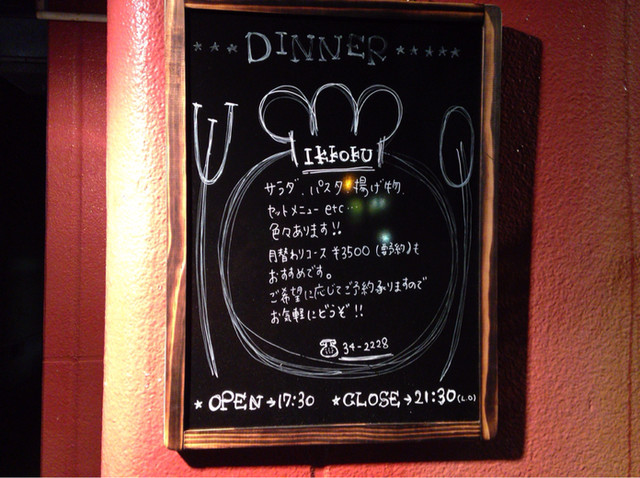 ★★★ DINNER ★★★★★
IKKOKU
サラダ、パスタ、揚げ物、
セットメニュー etc…
色々あります!!
月替わりコース ¥3500 (要予約)も
おすすめです。
ご希望に応じてご予約承りますので
お気軽にどうぞ!!
☎ 34-2228
★OPEN→17:30 ★CLOSE→21:30(L.O)